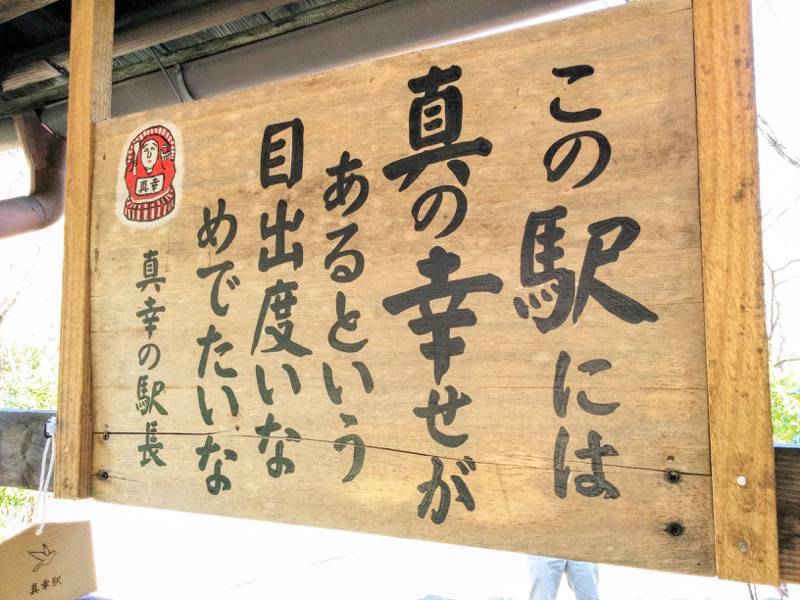 この駅には
真の幸せが
あるという
目出度いな
めでたいな
真幸の駅長
真幸
真幸駅